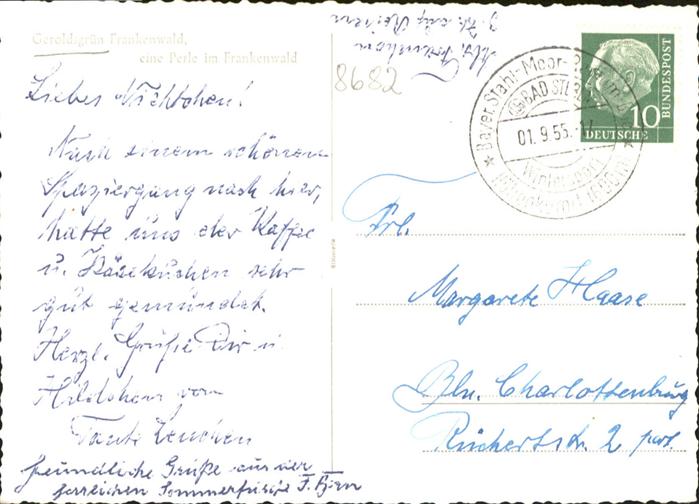 Geroldsgrün Frankenwald,
eine Perle im Frankenwald
8682
Liebes Nichtchen!
Nach einem schönen
Spaziergang nach hier,
hatte uns der Kaffee
u. Käsekuchen sehr
gut gemundet.
Herzl. Grüße Dir u.
von
Tante Lenchen
freundliche Grüße aus der
herrlichen Sommerfrische
Bayer. Stahl-Moor-
BAD STEBEN
01.9.55
Wintersport
10
DEUTSCHE
BUNDESPOST
Frl.
Margarete Haase
Bln. Charlottenburg
Rückertstr. 2 part.